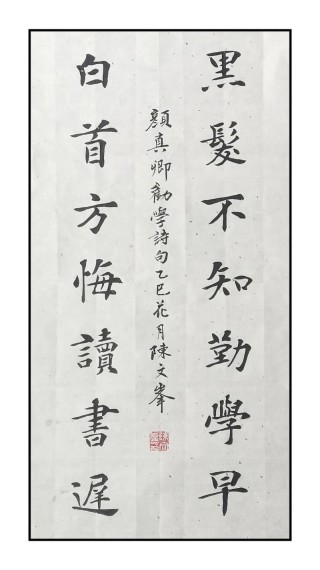 黑髮不知勤學早
白首方悔讀書遲
顏真卿勸學詩句乙巳花月陳文峯